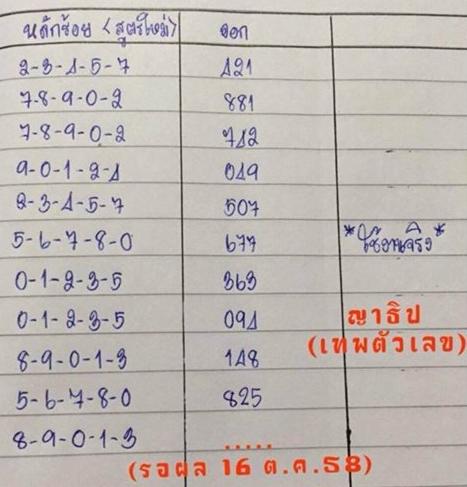 หลักร้อย (สูตรใหม่) ออก
2-3-4-5-7 421
7-8-9-0-2 881
7-8-9-0-2 742
9-0-1-2-4 049
2-3-4-5-7 507
5-6-7-8-0 677 *ใช้งานจริง*
0-1-2-3-5 363
0-1-2-3-5 094 ญาธิป
(เทพตัวเลข)
8-9-0-1-3 148
5-6-7-8-0 825
8-9-0-1-3 .....
(รอผล 16 ต.ค.58)